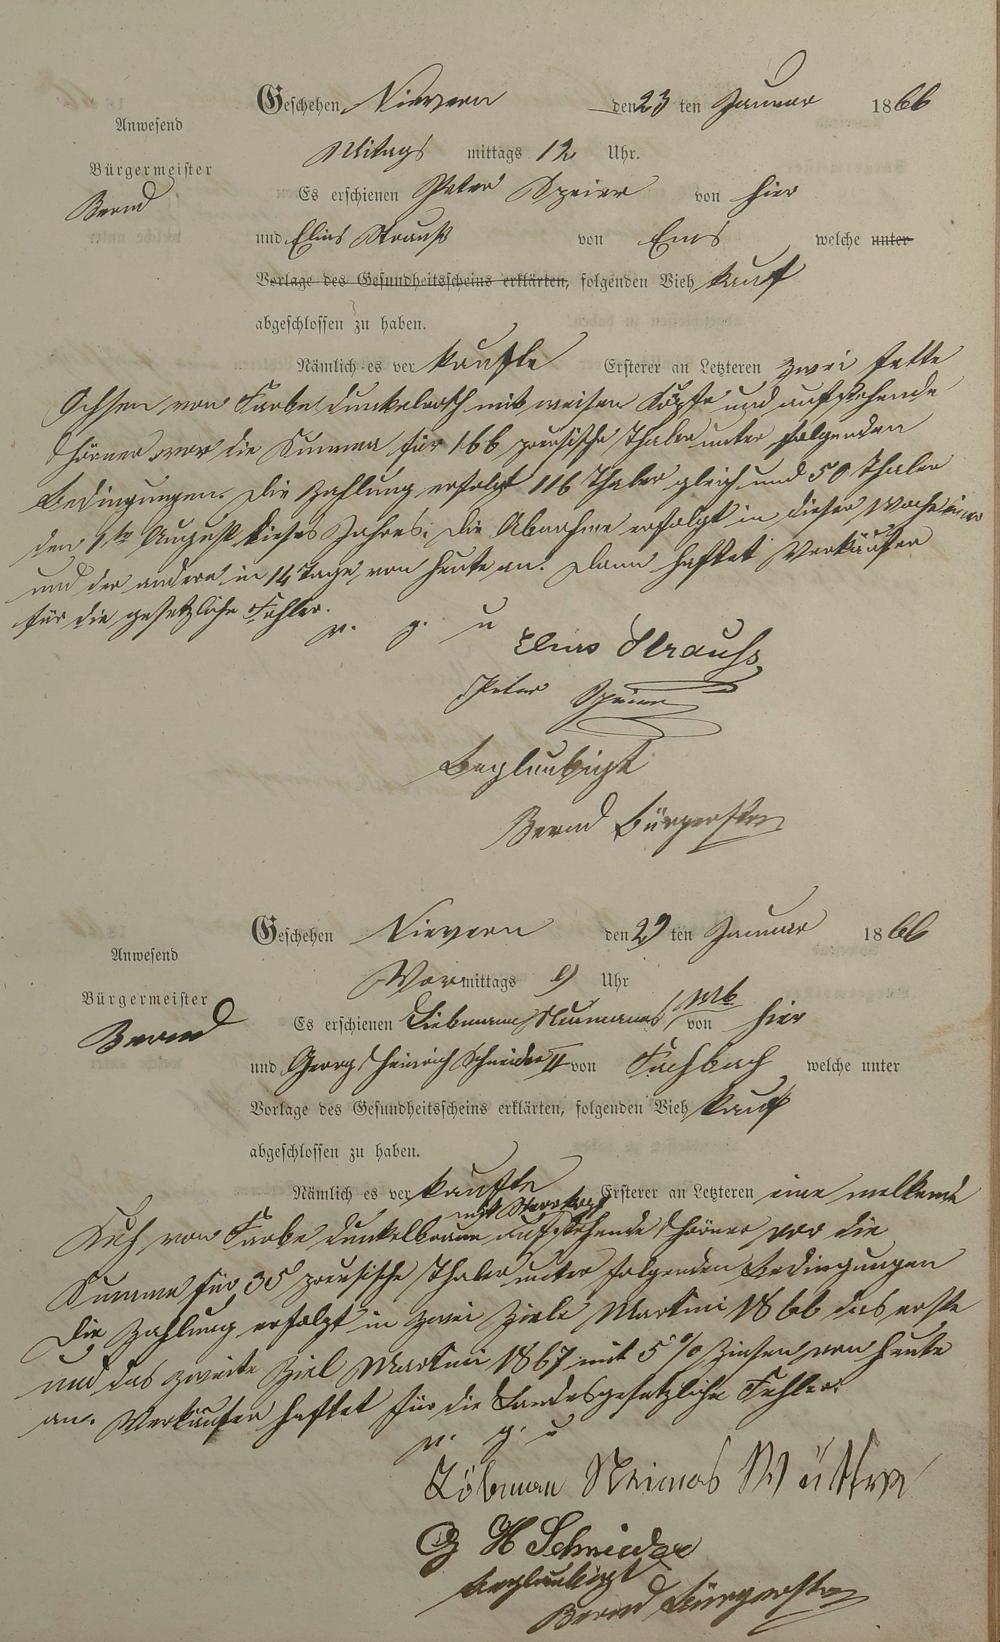 Geschehen Nievern den 23 ten Januar 1866
Anwesend
Mitags mittags 12 Uhr.
Bürgermeister
Bernd
Es erschienen Peter Speier von hier
und Elias Strauß von Ems welche unter
Vorlage des Gesundheitsscheins erklärten, folgenden Vieh kauf
abgeschlossen zu haben.
Nämlich es ver kaufte Ersterer an Letzteren zwei fette
Ochsen von Farbe dunkelroth mit weisen Köpfe und aufstehende
Hörner vor die Summa für 166 preusische Thaler unter folgenden
Bedingungen. Die Zahlung erfolgt 116 Thaler gleich und 50 Thaler
den 1ten August dieses Jahres. Die Abnahme erfolgt in dieser Woche einer
und der andere in 14 Tage von heute an. Dann haftet Verkäufer
für die gesetzliche Fehler.
v. g. u
Elias Strauß
Peter Speier
Beglaubigt
Bernd Bürgerster
Geschehen Nievern den 29 ten Januar 1866
Anwesend
Vormittags 9 Uhr
Bürgermeister
Bernd
Es erschienen Liebmann Neumanns Wb von hier
und Georg Heinrich Schneider II von Fachbach welche unter
Vorlage des Gesundheitsscheins erklärten, folgenden Vieh kauf
abgeschlossen zu haben.
Nämlich es ver kaufte Ersterer an Letzteren eine melkende
mit
Kuh von Farbe dunkelbraun aufstehende Hörner vor die
Summe für 35 preusische Thaler unter folgenden Bedingungen
Die Zahlung erfolgt in zwei Ziele Martini 1866 das erste
und das zweite Ziel Martini 1867 mit 5 % Zinsen von heute
an. Verkäufer haftet für die Landesgesetzliche Fehler.
v. g. u
Löbman Neimas Wittwe
G H Schneider
Beglaubigt
Bernd Bürgerster